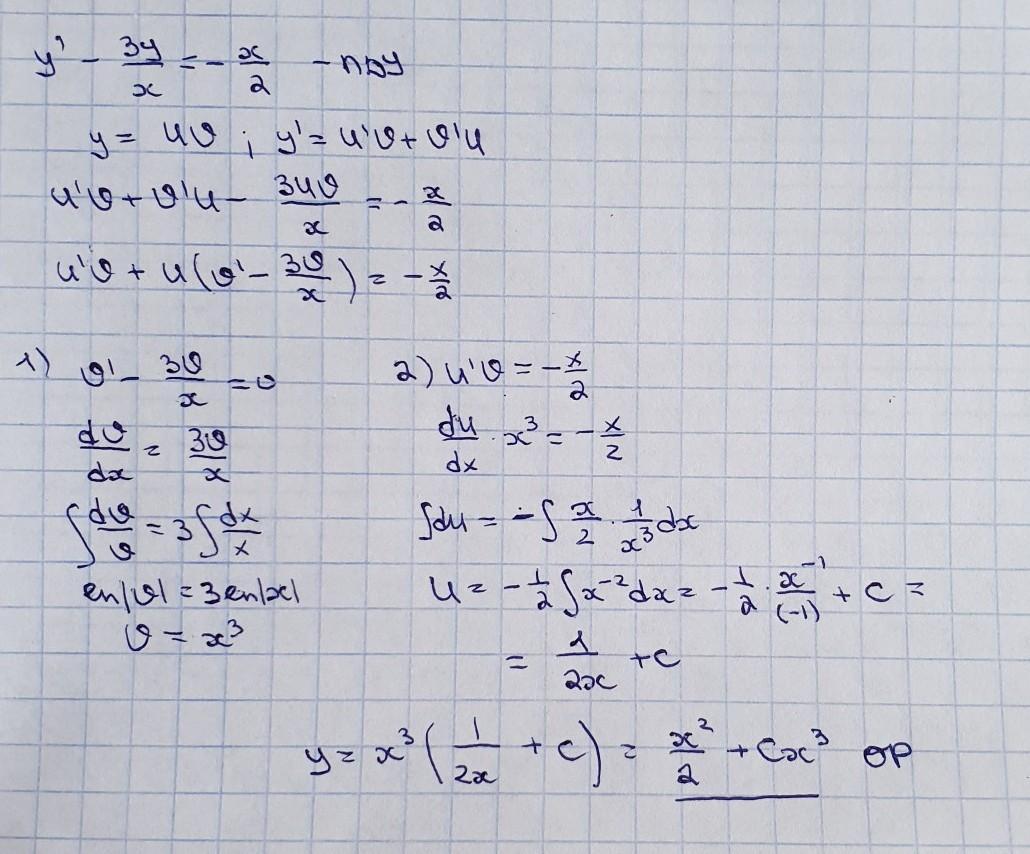 y' - 3y/x = - x/2 - ЛДУ
y = uv ; y' = u'v + v'u
u'v + v'u - 3uv/x = - x/2
u'v + u(v' - 3v/x) = - x/2
1) v' - 3v/x = 0
dv/dx = 3v/x
∫ dv/v = 3 ∫ dx/x
ln|v| = 3 ln|x|
v = x³
2) u'v = - x/2
du/dx · x³ = - x/2
∫du = - ∫ x/2 · 1/x³ dx
u = - 1/2 ∫ x⁻² dx = - 1/2 · x⁻¹/(-1) + C =
= 1/2x + C
y = x³ (1/2x + C) = x²/2 + Cx³ ОР